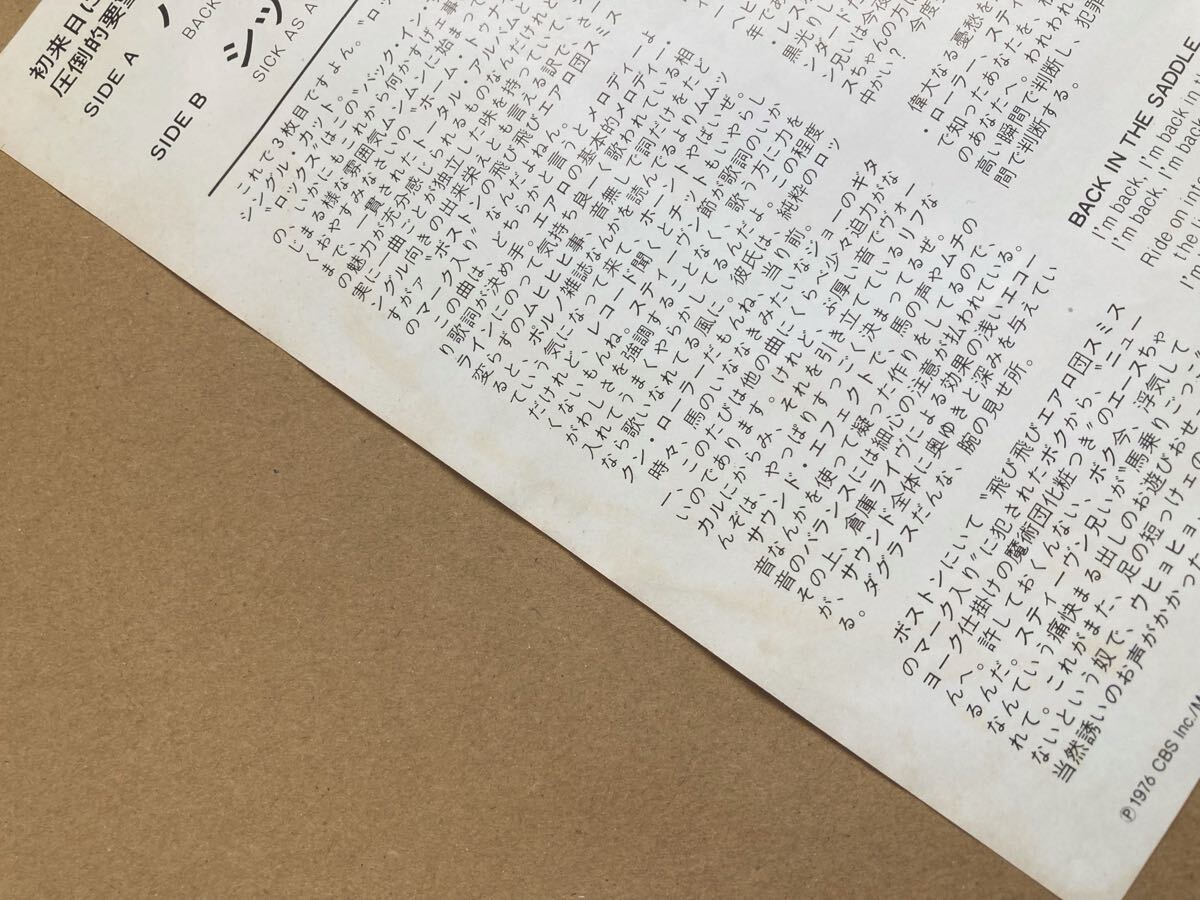 初来日に
圧倒的要望
SIDE A
BACK
SIDE B
シッ
SICK AS A
これで3枚目ですよん。
シングル・カット。
の、いかにもこれから何かすげェ事
じまる様な雰囲気ムンムンに始まって
まで、一貫されたトータル・アルバムと
の魅力が充分感じられるものなんだけれど
実に一曲ごとが独立した味を持っていて、さ
ングル向きの出来栄えとも言える訳で。
すが〝ボストンの飛び飛びエアロ団スミス
のマーク入り〟なんだよねん。
この曲は、どちらかと言うとメロディーよ
り歌詞が決め手。エアロの基本的メロディー・
ラインにのって気持ち良ーく歌われている相
変らずのムヒヒヒ事、音無しで詞だけをたど
ると、ポルノ雑誌なんかを読んでるよりムムッ
ていう気になって来て、ホーント、やばいぜ。
だけれど、レコード聞くとチットもいやらし
くないもんね。スティーヴン節が歌詞のいか
がわしさを強調することなく、歌う方に力を
入れてうまくやらかしてるんだよ。この程度
なら歌いなれてる風に。彼氏は、純粋のロッ
クン・ローラーだもんね、当り前。
時々、馬のいななきみたいなジョーのギタ
ー、このたびは他の曲にくらべ少々迫力がな
いのであります。けれど、ぶ厚い音でヴォー
カルにからみ、それを引き立てているリフな
んぞは、やっぱりすっごく決まってるぜ。
サウンド・エフェクトで、馬の声やムチの
音なんかを使って凝った作りをしてるので、
音のバランスには細心の注意が払われている。
その上、倉庫ライヴによる効果の浅いエコー
が、サウンド全体に奥ゆきと深みを与えてい
る。ダグラスだんな、腕の見せ所。
ボストンにいて〝飛び飛びエアロ団スミス
のマーク入り〟に犯されたボクから、〝ニュー
ヨーク仕掛けの魔術団化粧つき〟のエースちゃ
んへ。許しておくんない、ボク今、浮気して
るんだ。スティーヴン兄いが〝馬乗りごっこ
なんていう痛快まる出しのお遊びおせ
れて。これがまた、足の短っけェの
ないという奴で、ウヒョヒョ
当然誘いのお声がかかった
中かい？
偉大なる憂愁を
・ローラー、スティ
で知ったあなたを、
のあなたへ。われわれ
高い瞬間で判断し、犯罪
間で判断する。
BACK IN THE SADDLE
I'm back, I'm back in
I'm back, I'm ba
Ride on in
the
℗ 1976 CBS Inc/M